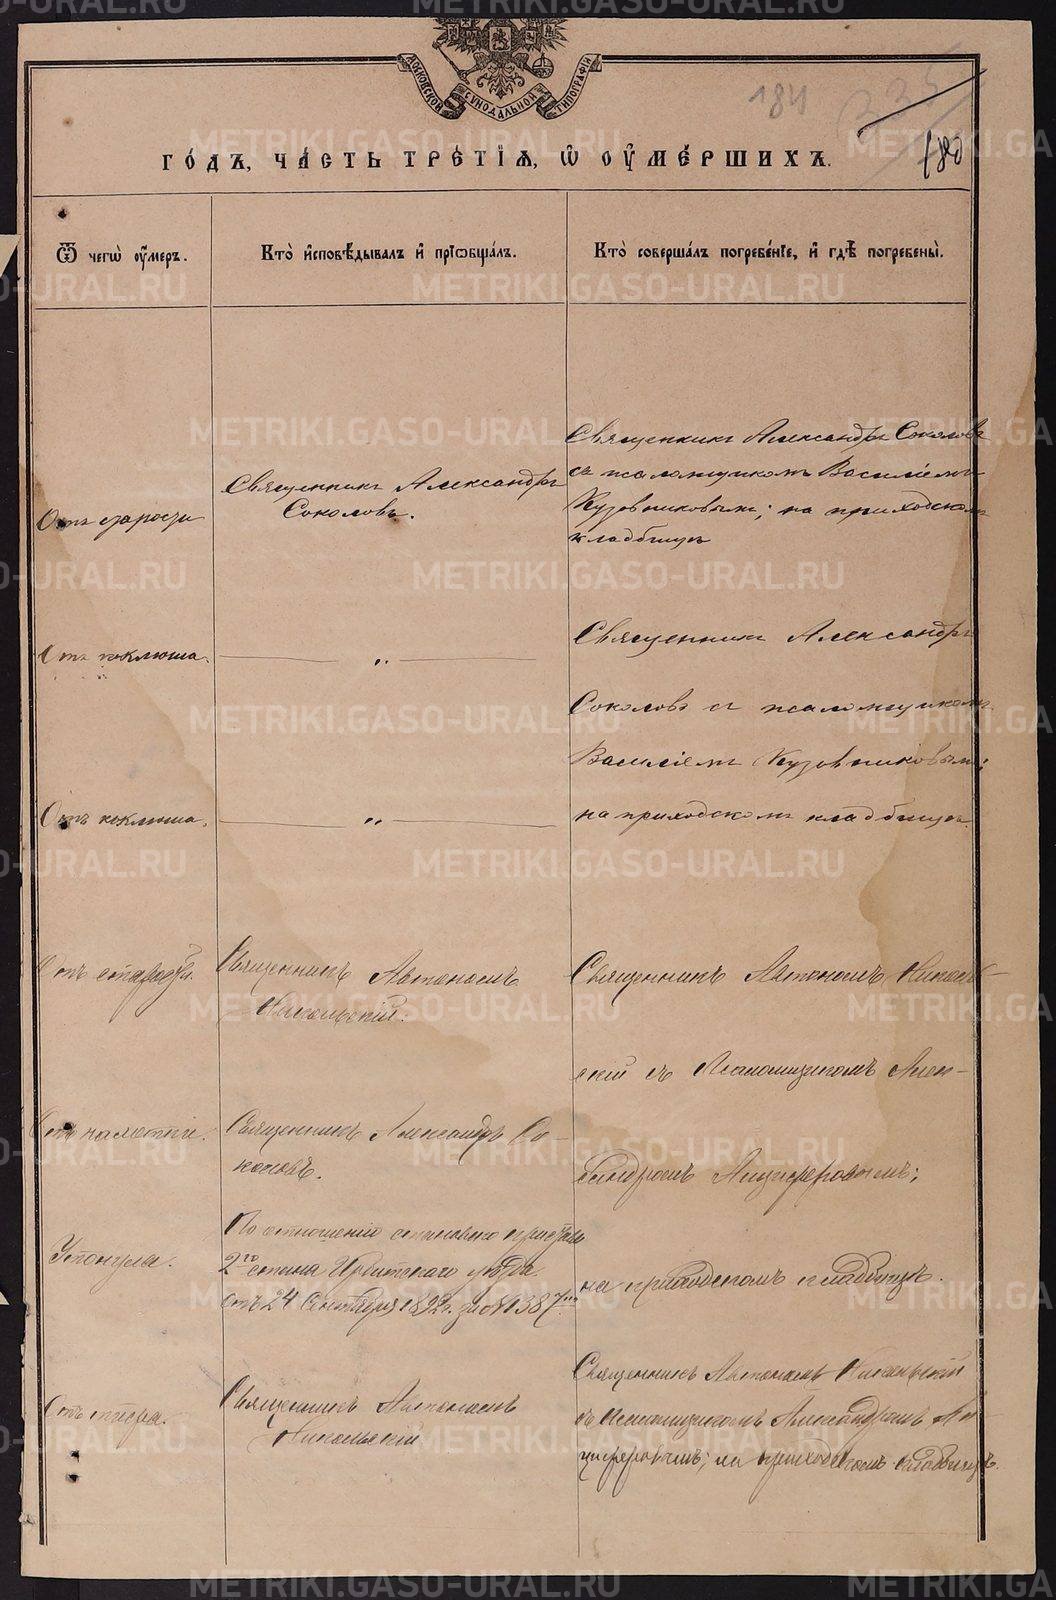 МОСКОВСКОЙ СУНОДАЛЬНОЙ ТИПОГРАФІИ
184
180
ГОДЪ, ЧАСТЬ ТРЕТІѦ, Ѡ ОУМЕРШИХЪ.
Ѿ чегѡ оумеръ.
Кто исповѣдывалъ и прїѡбщалъ.
Кто совершалъ погребенїе, и гдѣ погребены.
Отъ старости
Священникъ Александръ
Соколовъ.
Священникъ Александръ Соколовъ
съ псаломщикомъ Василіемъ
Кузовниковымъ; на приходскомъ
кладбищѣ
Отъ коклюша.
— „ —
Священникъ Александръ
Соколовъ съ псаломщикомъ
Василіемъ Кузовниковымъ;
на приходскомъ кладбищѣ.
Отъ коклюша.
— „ —
Отъ старости.
Священникъ Автономъ
Никольскій.
Священникъ Автономъ Николь-
скій съ Псаломщикомъ Алек-
сандромъ Анциферовымъ;
на приходскомъ кладбищѣ.
Священникъ Александръ Со-
коловъ.
Утонула.
По отношенію становаго пристава
2го стана Ирбитскаго уѣзда
отъ 24 Сентября 1892 г. за №
Священникъ Автономъ
Никольскій
Священникъ Автономъ Никольскій
съ Псаломщикомъ Александромъ Ан-
циферовымъ; на приходскомъ кладбищѣ.
METRIKI.GASO-URAL.RU